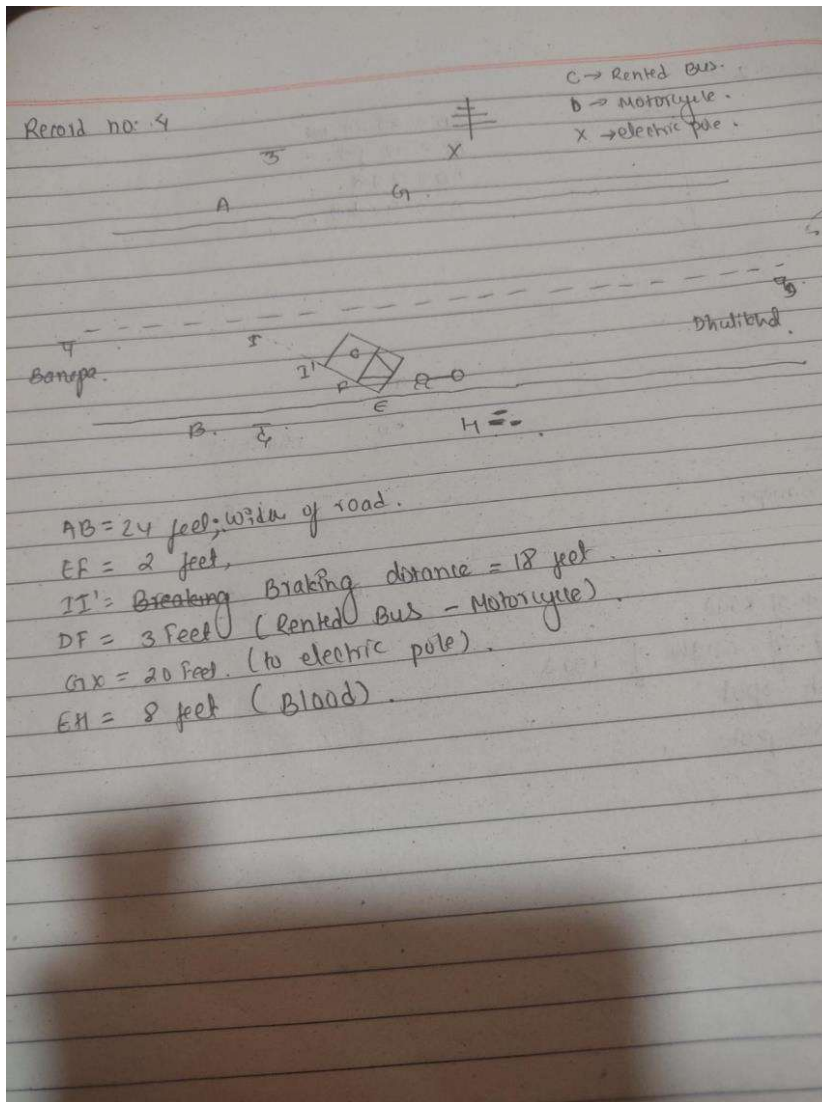 C → Rented Bus.
D → Motorcycle.
Record no: 4
X → electric pole.
3
X
A
G.
4
I
Dhulikhel.
Banepa.
I'
C
F
D
E
B.
H
AB = 24 feet; Width of road.
EF = 2 feet,
II' = Breaking Braking distance = 18 feet.
DF = 3 Feet (Rented Bus - Motorcycle).
GX = 20 Feet. (to electric pole).
EH = 8 feet (Blood).